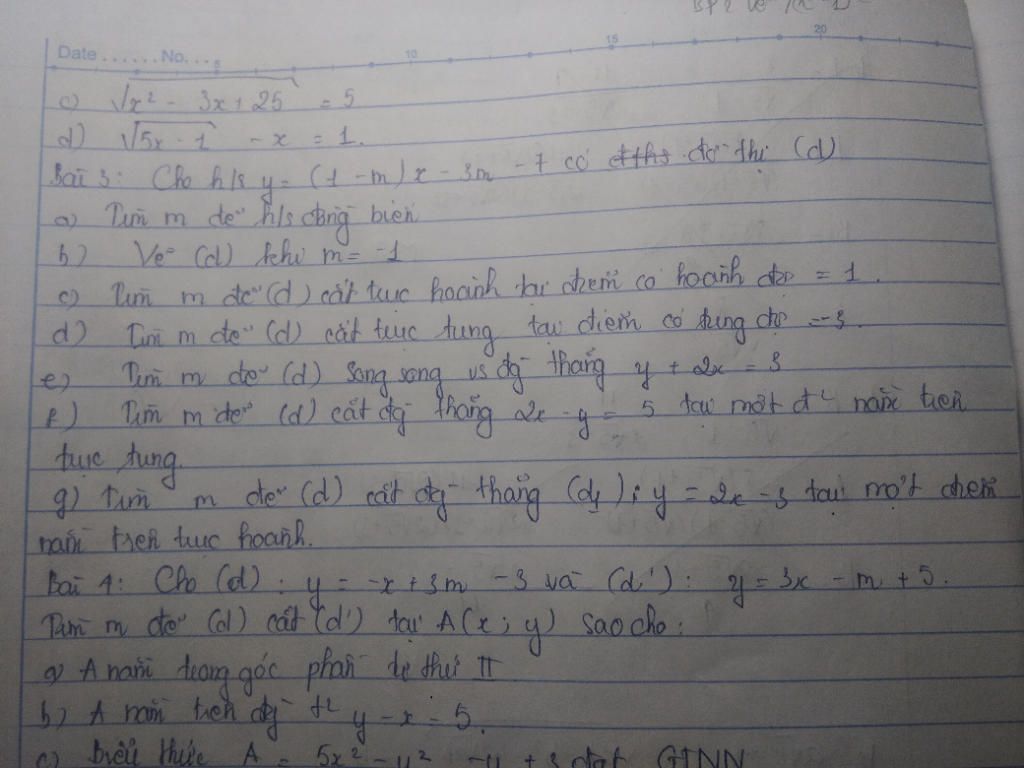 Date ...... No. ... 5 10 15 20
c) √x² - 3x + 25 = 5
d) √5x - 1 - x = 1.
Bài 3: Cho h/s y = (1 - m)x - 3m - 7 có đồ thị (d)
a) Tìm m để h/s đồng biến
b) Vẽ (d) khi m = -1
c) Tìm m để (d) cắt trục hoành tại điểm có hoành độ = 1.
d) Tìm m để (d) cắt trục tung tại điểm có tung độ = -3.
e) Tìm m để (d) song song vs đg thẳng y + 2x = 3
f) Tìm m để (d) cắt đg thẳng 2x - y = 5 tại một đ² nằm trên
trục tung.
g) Tìm m để (d) cắt đg thẳng (d₁): y = 2x - 3 tại một điểm
nằm trên trục hoành.
Bài 4: Cho (d): y = -x + 3m - 3 và (d'): y = 3x - m + 5.
Tìm m để (d) cắt (d') tại A(x; y) sao cho:
a) A nằm trong góc phần tư thứ II
b) A nằm trên đg t² y - x = 5.
c) Biểu thức A = 5x² - y² - y + 3 đạt GTNN